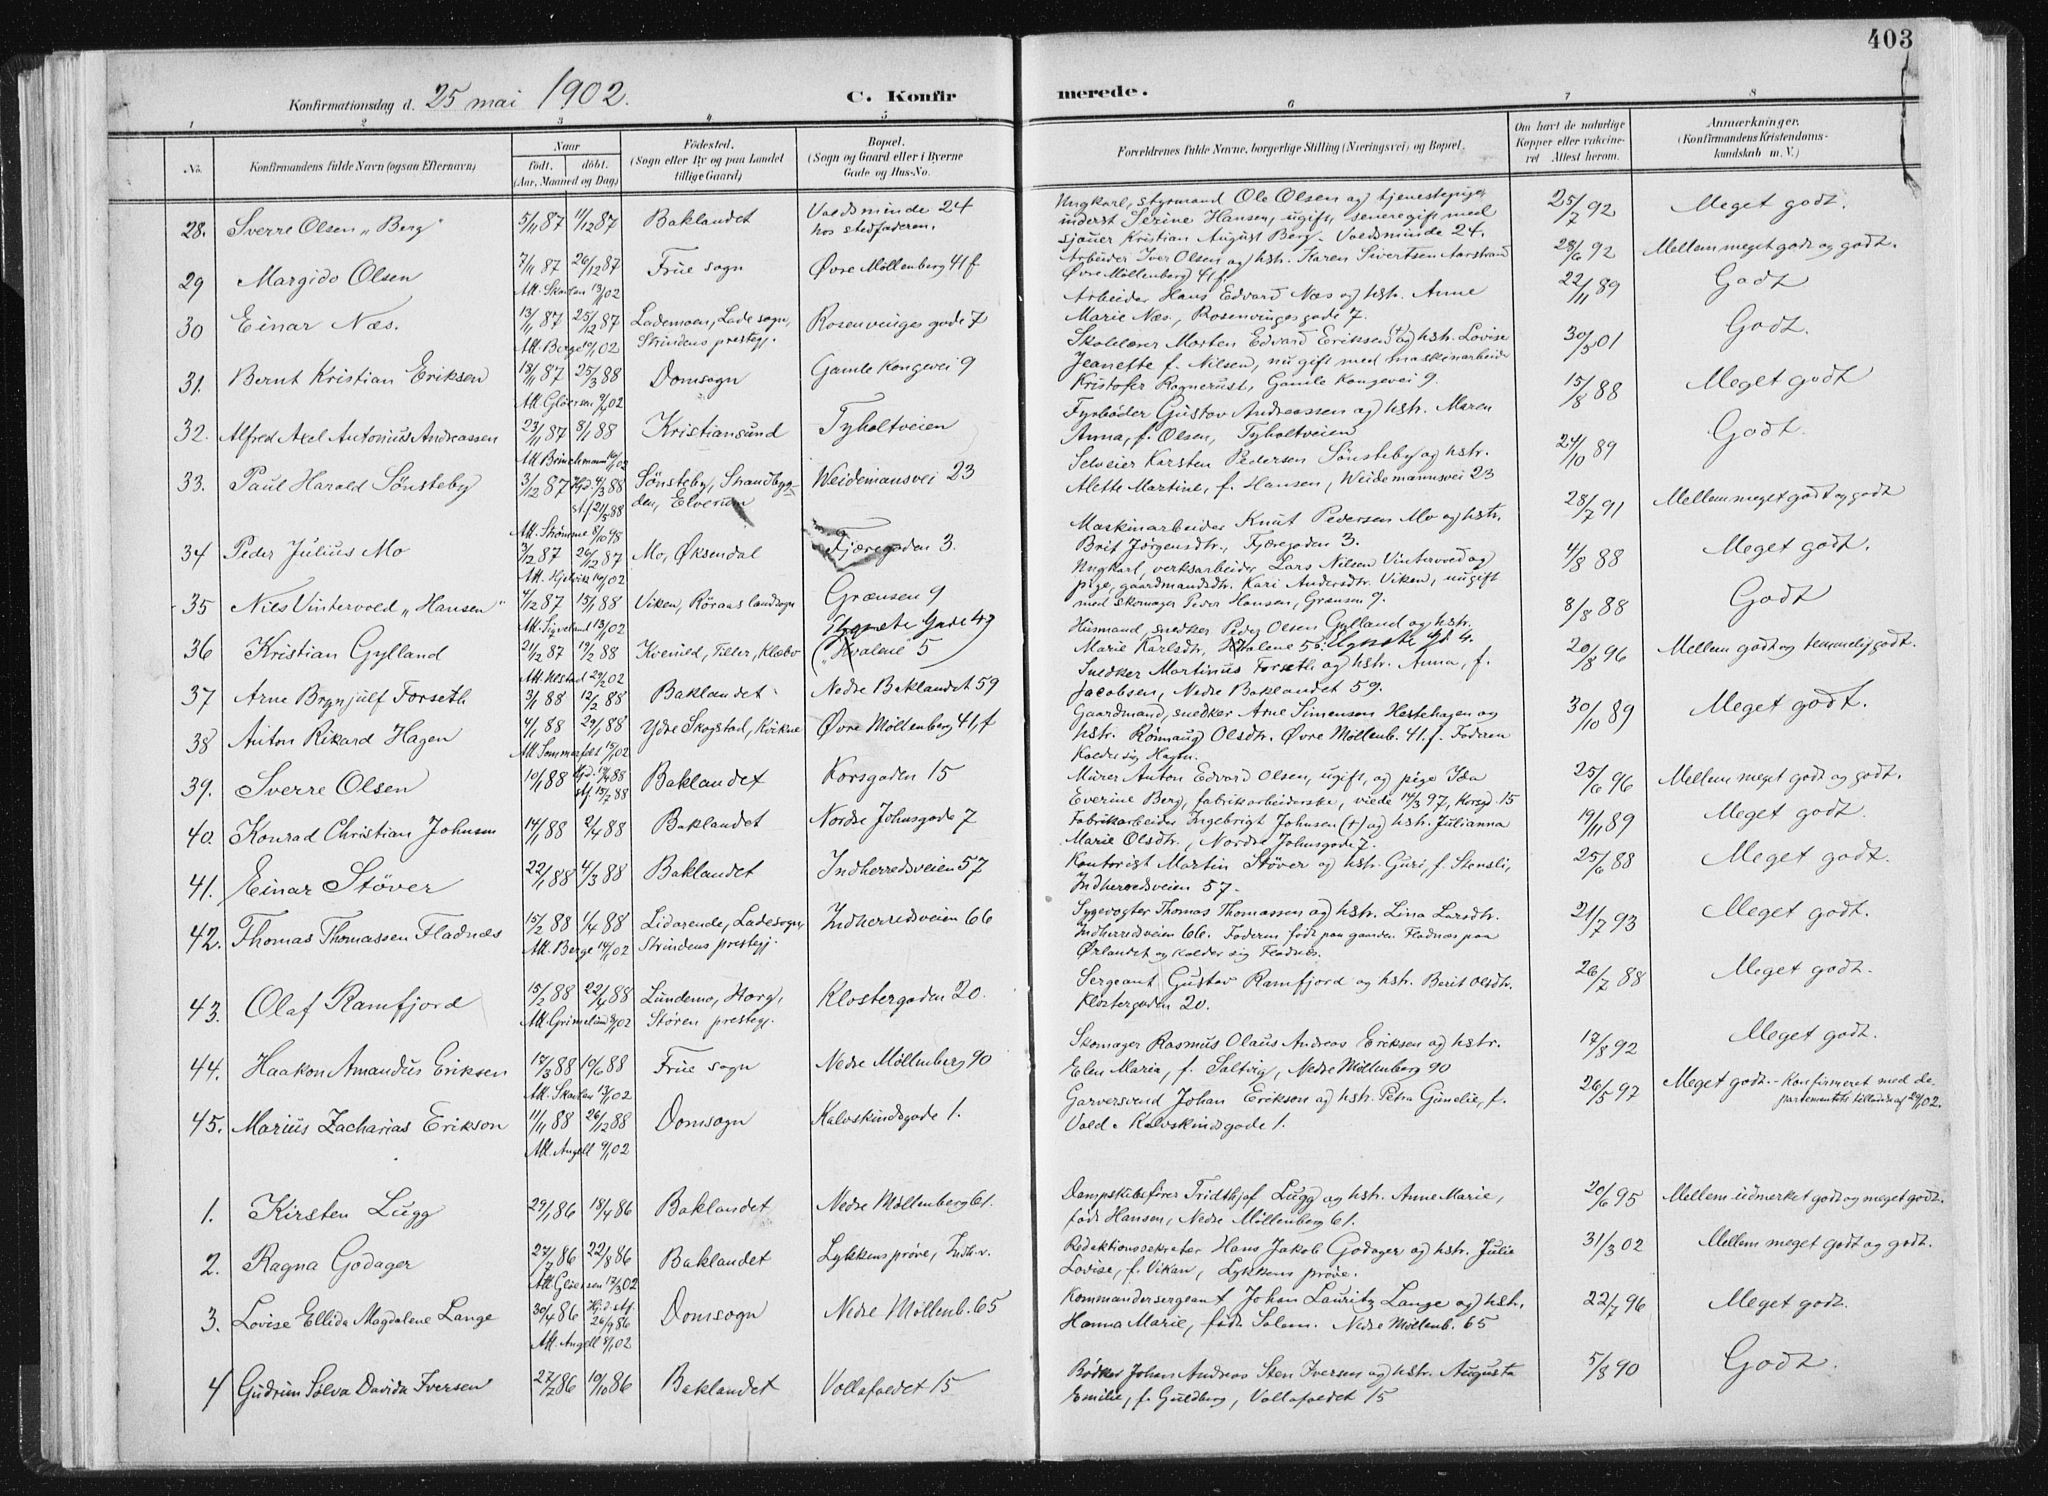 403
Konfirmationsdag d. 25 mai 1902. C. Konfirmerede.
1 2 3 4 5 6 7 8
No. Konfirmandens fulde Navn (ogsaa Efternavn) Naar født. døbt. (Aar, Maaned og Dag) Fødested. (Sogn eller By og paa Landet tillige Gaard) Bopæl. (Sogn og Gaard eller i Byerne Gade og Hus-No. Forældrenes fulde Navne, borgerlige Stilling (Næringsvei) og Bopæl. Om havt de naturlige Kopper eller vaccineret Attest herom. Anmærkninger. (Konfirmandens Kristendomskundskab m. V.)
28. Sverre Olsen „Berg" 5/11 87 11/12 87 Baklandet Voldsminde 24 hos stedfaderen. Ungkarl, styrmand Ole Olsen og tjenestepige, inderst Serine Hansen, ugift, senere gift med sjouer Kristian August Berg. Voldsminde 24. 25/7 92 Meget godt.
29 Margido Olsen 7/11 87 26/12 87 Att. Skavlan 13/1 02 Frue sogn Øvre Møllenberg 41 f Arbeider Iver Olsen og hstr. Karen Sivertsen Aarstrand Øvre Møllenberg 41 f. 28/6 92 Mellem meget godt og godt.
30 Einar Næs. 13/11 87 25/12 87 Att. Berge 10/1 02 Lademoen, Lade sogn, Strindens prestegj. Rosenvinges gade 7 Arbeider Hans Edvard Næs og hstr. Anne Marie Næs, Rosenvinges gade 7. 22/11 89 Godt
31. Bernt Kristian Eriksen 18/11 87 25/3 88 Att. Gløersen 9/1 02 Domsogn Gamle Kongevei 9 Skolelærer Morten Edvard Eriksen (+) og hstr. Lovise Jeanette f. Nilsen, nu gift med maskinarbeider Kristofer Rognerust, Gamle Kongevei 9. 30/5 01 Godt.
32. Alfred Axel Antonius Andreassen 23/11 87 8/1 88 Att. Brinchmann 10/1 02 Kristiansund Tyholtveien Fyrbøder Gustav Andreassen og hstr. Maren Anna, f. Olsen, Tyholtveien 15/8 88 Meget godt
33. Paul Harald Sønsteby 3/12 87 Hjd. 4/3 88 st.f. 21/5 88 Att. Strømme 8/10 98 Sønsteby, Strandbygden, Elverum Weidemansvei 23 Selveier Karsten Pedersen Sønsteby og hstr. Alette Martine, f. Hansen, Weidemannsvei 23 24/10 89 Godt.
34 Peder Julius Mo 3/12 87 26/12 87 Mo, Øksendal Fjæregaden 3. Maskinarbeider Knut Pedersen Mo og hstr. Brit Jørgensdtr., Fjæregaden 3. 28/7 91 Mellem meget godt og godt
35 Nils Vintervold „Hansen" 4/12 87 15/1 88 Att. Sigveland 13/1 02 Viken, Røraas landsogn Grænsen 9 Ungkarl, verksarbeider Lars Nilsen Vintervold og pige, gaardmandsdtr. Kari Andersdtr. Viken, nu gift med skomager Peder Hansen, Grænsen 9. 4/8 88 Meget godt.
36 Kristian Gylland 21/12 87 19/2 88 Kvenild, Tiller, Klæbo („Hvalene 5 Husmand, snedker Peder Olsen Gylland og hstr. Marie Karlsdtr. 8/8 88 Godt
37 Arne Brynjulf Forseth 3/1 88 12/2 88 Baklandet Nedre Baklandet 59 Snedker Martinus Forseth og hstr. Anna, f. Jacobsen, Nedre Baklandet 59. 20/8 96 Mellem godt og temmelig godt.
38 Anton Rikard Hagen 4/1 88 29/1 88 Att. Sommerfelt 15/1 02 Ydre Skogstad, Kvikne Øvre Møllenberg 41, f Gaardmand, snedker Arne Simensen Hestehagen og hstr. Rønnaug Olsdtr. Øvre Møllenb. 41. f. Faderen kalder sig Hagen. 30/10 89 Meget godt.
39. Sverre Olsen 10/1 88 Baklandet Korsgaden 15 Murer Anton Edvard Olsen, ugift, og pige Ida Everine Berg, fabrikarbeiderske, viede 14/3 97, Korsgd. 15 25/6 96 Mellem meget godt og godt.
40. Konrad Christian Johnsen 14/1 88 2/4 88 Baklandet Nordre Johnsgade 7 Fabrikarbeider Ingebrigt Johnsen (+) og hstr. Julianna Marie Olsdtr., Nordre Johnsgade 7. 19/11 89 Meget godt
41. Einar Støver 22/1 88 4/3 88 Baklandet Indherredsveien 57 Kontorist Martin Støver og hstr. Guri, f. Stensli, Indherredsveien 57. 25/6 88 Meget godt.
42. Thomas Thomassen Fladnæs 15/2 88 1/4 88 Att. Berge 14/1 02 Lidarende, Ladesogn, Strindens prestegj. Indherredsveien 66 Sygevogter Thomas Thomassen og hstr. Lina Larsdtr. Indherredsveien 66. Faderen født paa gaarden Fladnæs paa Ørlandet og kalder sig Fladnæs. 21/7 93 Meget godt.
43. Olaf Ramfjord 15/2 88 22/4 88 Att. Grimelund 8/1 02 Lundemo, Horg, Støren prestegj. Klostergaden 20. Sergeant Gustav Ramfjord og hstr. Berit Olsdtr. Klostergaden 20. 26/7 88 Meget godt.
44. Haakon Amandus Eriksen 17/3 88 10/6 88 Att. Skavlan 13/1 02 Frue sogn Nedre Møllenberg 90 Skomager Rasmus Olaus Andreas Eriksen og hstr. Elen Maria, f. Saltvig, Nedre Møllenberg 90 17/8 92 Meget godt.
45. Marius Zacharias Erikson 11/11 88 26/12 88 Att. Angell 9/1 02 Domsogn Kalvskindsgade 1. Garversvend Johan Erikson og hstr. Petra Gunelie, f. Vold. Kalvskindsgade 1. 26/5 97 Meget godt. - Konfirmeret med departementets tilladelse af 29/1 02.
1. Kirsten Lugg 29/1 86 18/4 86 Baklandet Nedre Møllenberg 61. Dampskibsfører Fridthjof Lugg og hstr. Anne Marie, født Hansen, Nedre Møllenberg 61. 20/6 95 Mellem udmerket godt og meget godt.
2. Ragna Godager 27/7 86 22/8 86 Att. Gløersen 17/3 02 Baklandet Lykkens prøve, Indh.v. Redaktionssekretær Hans Jakob Godager og hstr. Julie Lovise, f. Vikan, Lykkens prøve. 31/3 02 Mellem meget godt og godt.
3. Lovise Ellida Magdalene Lange 30/4 86 Hjd. stf. 26/9 86 Att. Angell 8/1 02 Domsogn Nedre Møllenb. 65 Kommandersergeant Johan Lauritz Lange og hstr. Hanna Marie, født Solem. Nedre Møllenb. 65 22/7 96 Meget godt.
4 Gudrun Solva Davida Iversen 27/7 86 10/10 86 Baklandet Vollafaldet 15 Bødker Johan Andreas Sten Iversen og hstr. Augusta Emilie, f. Guldberg, Vollafaldet 15 5/8 90 Godt.